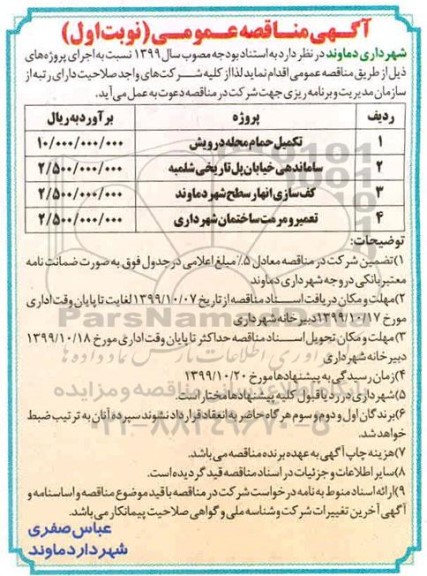 آگهی مناقصه عمومی (نوبت اول)
شهرداری دماوند در نظر دارد به استناد بودجه مصوب سال ۱۳۹۹ نسبت به اجرای پروژه‌های
ذیل از طریق مناقصه عمومی اقدام نماید لذا از کلیه شرکت‌های واجد صلاحیت دارای رتبه از
سازمان مدیریت و برنامه ریزی جهت شرکت در مناقصه دعوت به عمل می‌آید.
ردیف پروژه برآورد به ریال
۱ تکمیل حمام محله درویش ۱۰/۰۰۰/۰۰۰/۰۰۰
۲ ساماندهی خیابان پل تاریخی شلمبه ۲/۵۰۰/۰۰۰/۰۰۰
۳ کف سازی انهار سطح شهر دماوند ۲/۵۰۰/۰۰۰/۰۰۰
۴ تعمیر و مرمت ساختمان شهرداری ۲/۵۰۰/۰۰۰/۰۰۰
توضیحات:
۱) تضمین شرکت در مناقصه معادل ۵٪ مبلغ اعلامی در جدول فوق به صورت ضمانت نامه
معتبر بانکی در وجه شهرداری دماوند
۲) مهلت و مکان دریافت اسناد مناقصه از تاریخ ۱۳۹۹/۱۰/۰۷ لغایت تا پایان وقت اداری
مورخ ۱۳۹۹/۱۰/۱۷ دبیرخانه شهرداری
۳) مهلت و مکان تحویل اسناد مناقصه حداکثر تا پایان وقت اداری مورخ ۱۳۹۹/۱۰/۱۸
دبیرخانه شهرداری
۴) زمان رسیدگی به پیشنهادها مورخ ۱۳۹۹/۱۰/۲۰
۵) شهرداری در رد یا قبول کلیه پیشنهادها مختار است.
۶) برندگان اول و دوم و سوم هرگاه حاضر به انعقاد قرارداد نشوند سپرده آنان به ترتیب ضبط
خواهد شد.
۷) هزینه چاپ آگهی به عهده برنده مناقصه می‌باشد.
۸) سایر اطلاعات و جزئیات در اسناد مناقصه قید گردیده است.
۹) ارائه اسناد منوط به نامه درخواست شرکت در مناقصه با قید موضوع مناقصه و اساسنامه و
آگهی آخرین تغییرات شرکت و شناسه ملی و گواهی صلاحیت پیمانکار می‌باشد.
عباس صفری
شهردار دماوند
ParsNamadData
۰۲۱-۸۸۳۴۹۶۷۰-۵